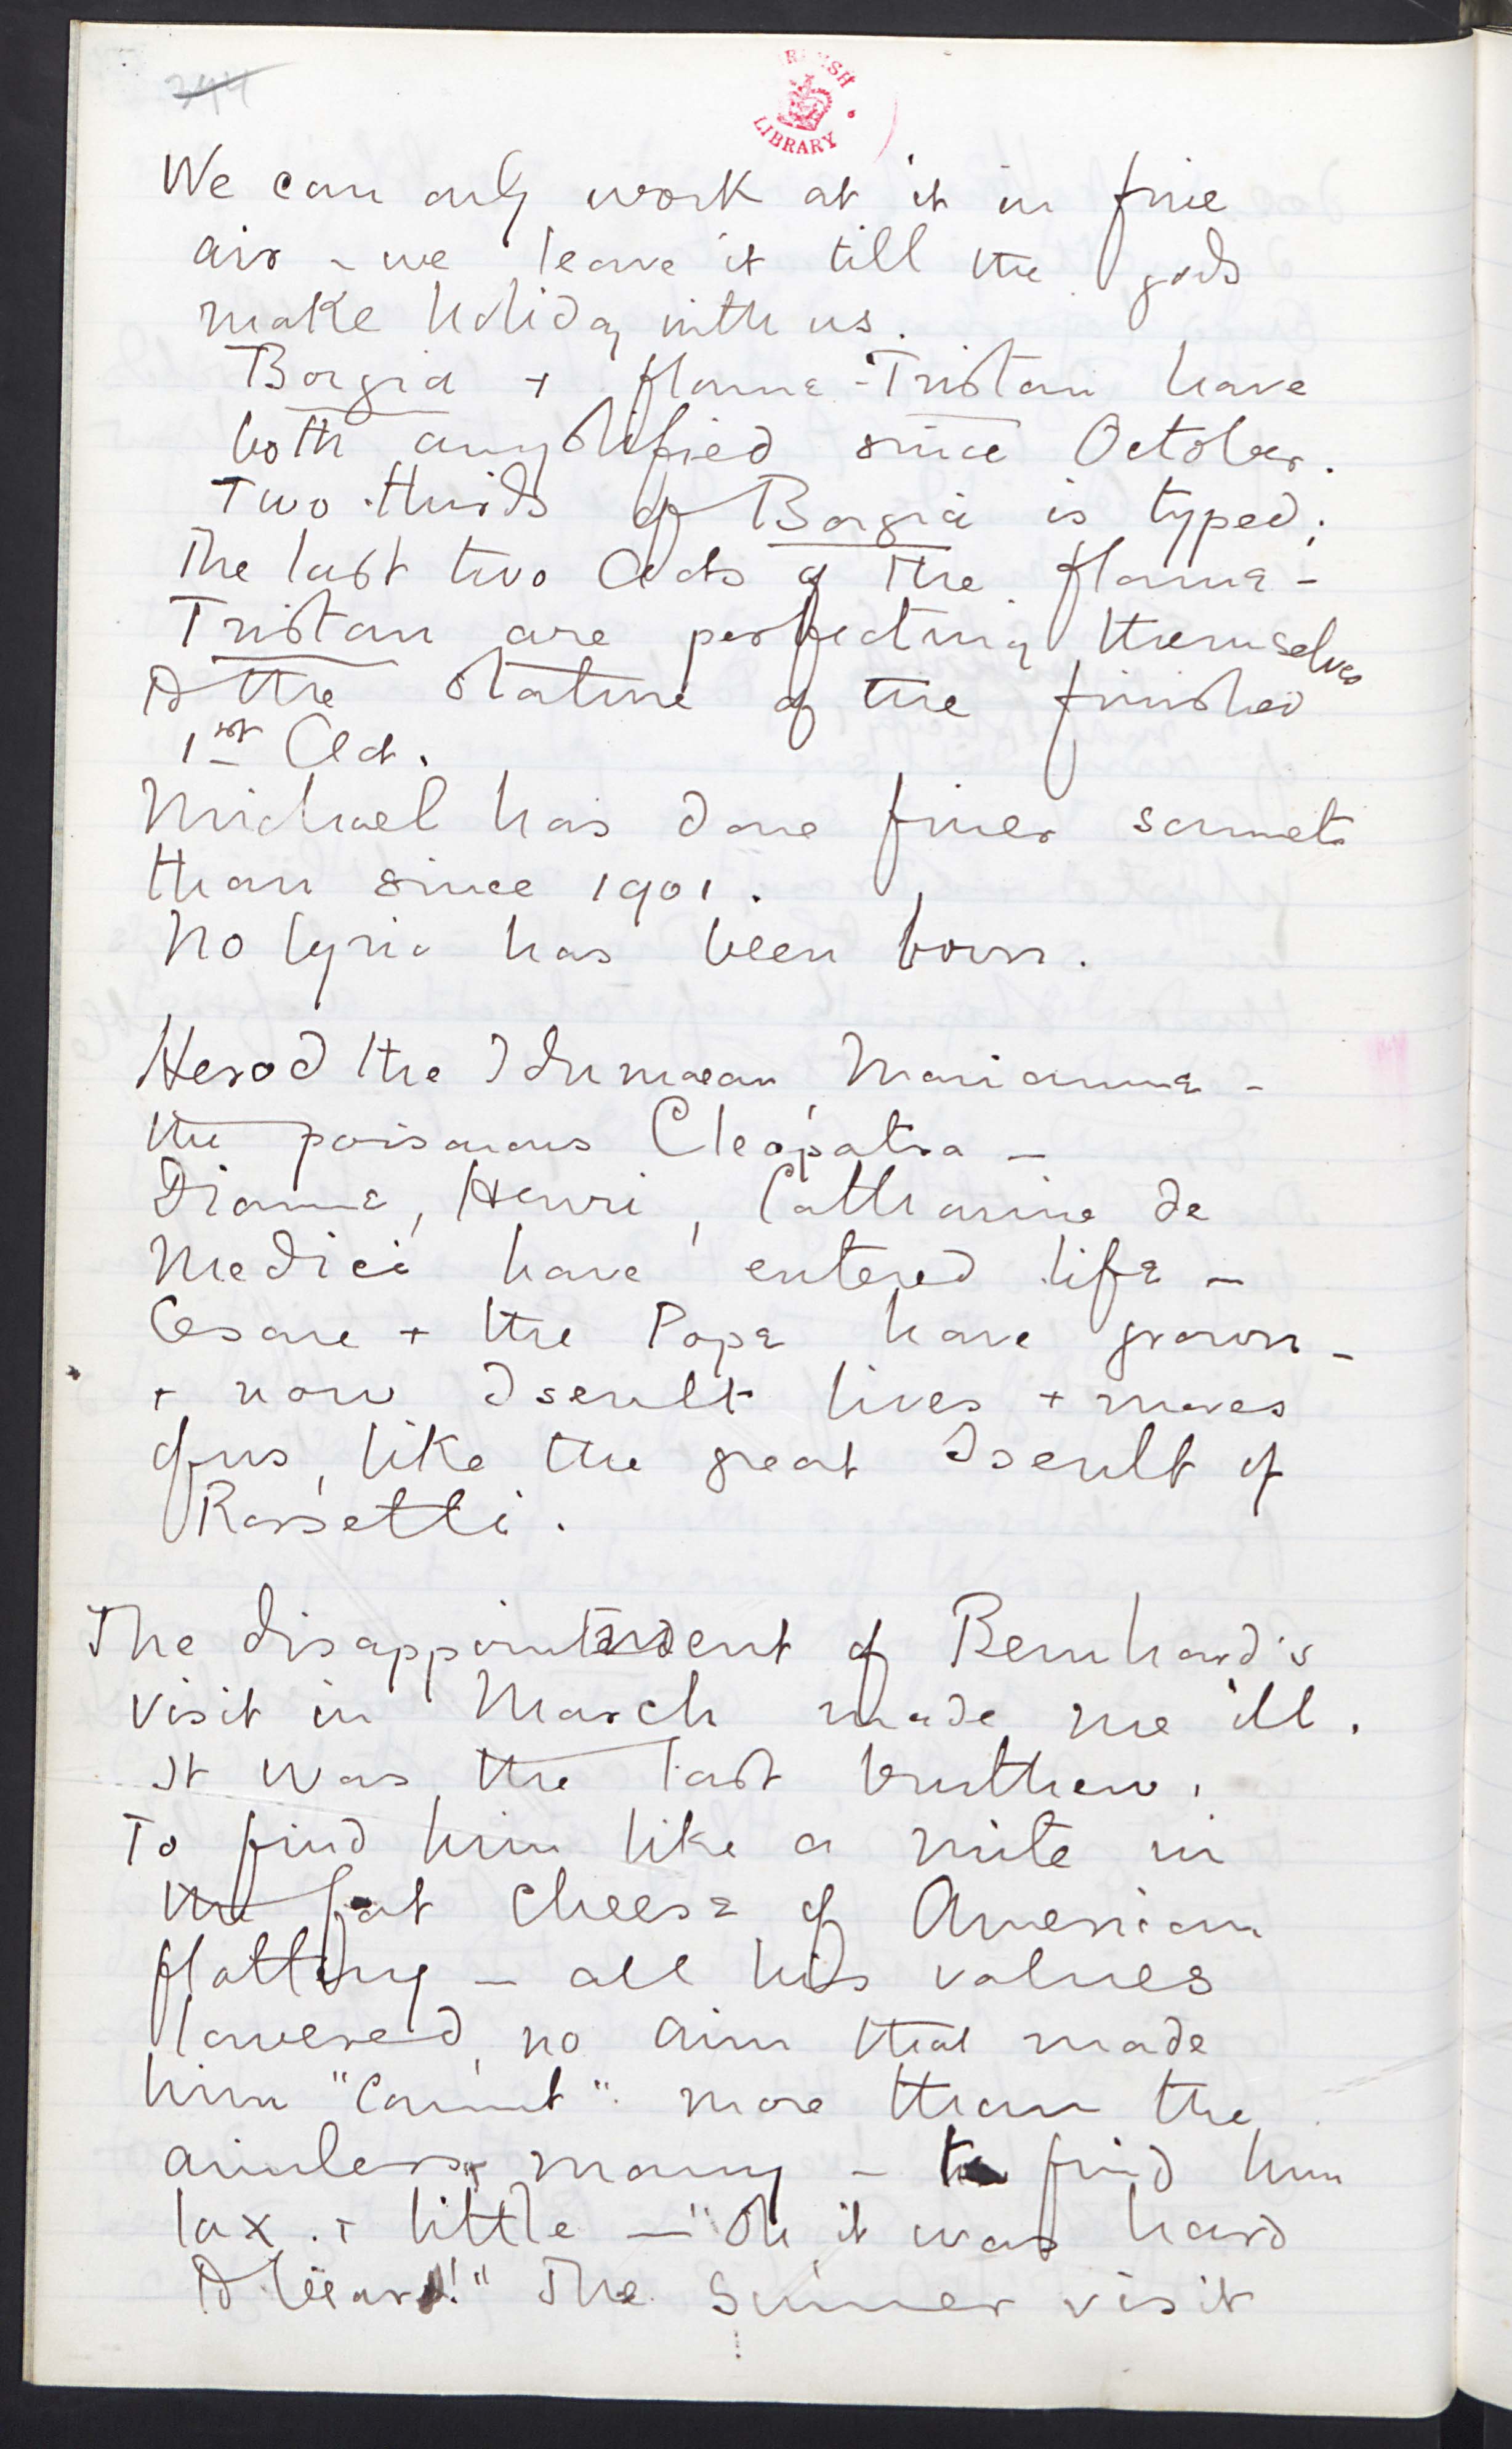 244
BRITISH
LIBRARY
We can only work at it in fine
air – we leave it till the gods
make holiday with us.
Borgia + flame-Tristan have
both amplified since October.
Two-thirds of Borgia is typed;
The last two Acts of the flame-
Tristan are perfecting themselves
to the stature of the finished
1st Act.
Michael has done finer sonnets
than since 1901.
No lyric has been born.
Herod the Idumaean, Mariamne –
the poisonous Cleopatra –
Dianne, Henri, Catharine de
Medici have entered life –
Cesare + the Pope have grown –
+ now Iseult lives + moves
of us, like the great Iseult of
Rossetti.
The disappointment of Bernhard's
visit in March made me ill.
It was the last brother.
To find him like a mite in
the fat cheese of American
flatting – all his values
lowered, no aim that made
him "count" more than the
aimless many – to find him
lax + little – "Oh it was hard
to bear!" The Summer visit